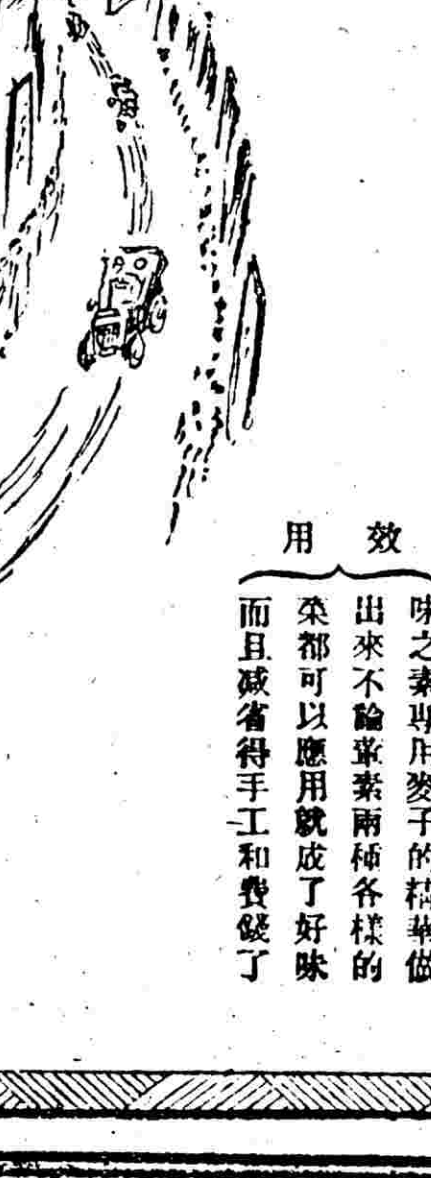 效用
味之素專用麥子的精華做
出來不論葷素兩種各樣的
菜都可以應用就成了好味
而且減省得手工和費錢了